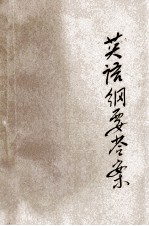 英语纲要答案